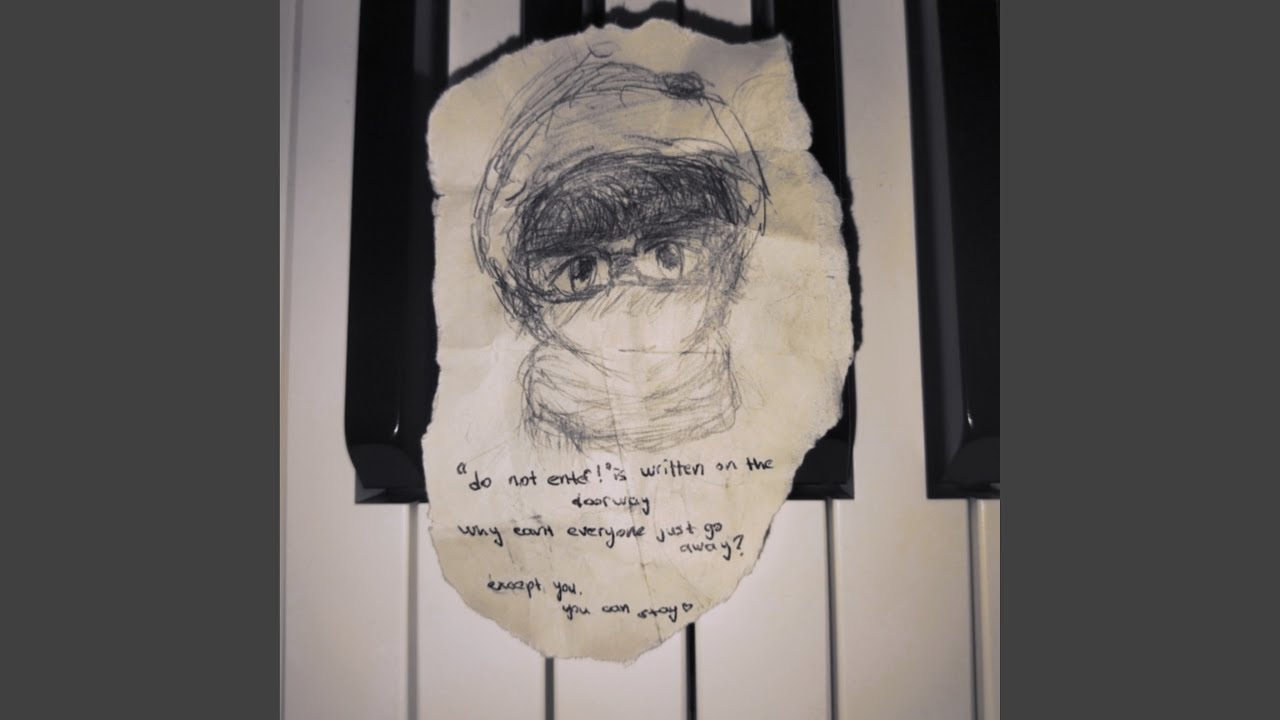 "do not enter!" is written on the
doorway
why can't everyone just go
away?
except you.
you can stay